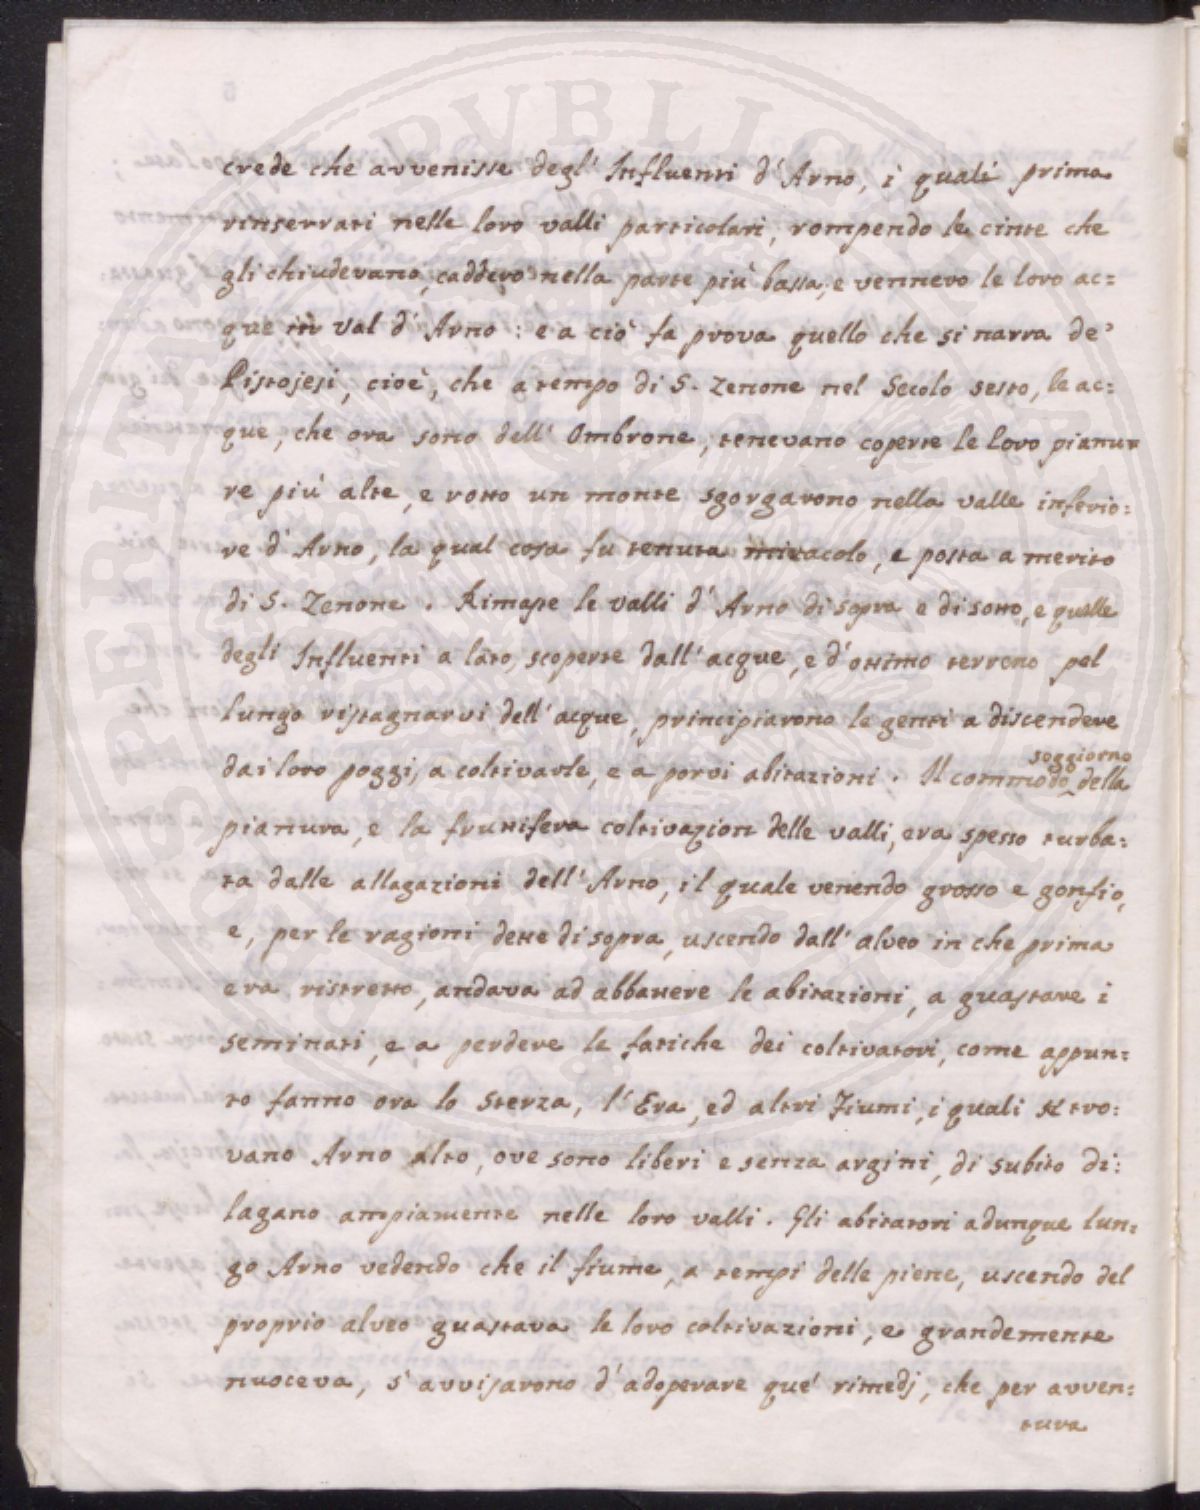 crede che avvenisse degl' Influenti d'Arno, i quali prima
rinserrati nelle loro valli particolari, rompendo le cinte che
gli chiudevano, caddero nella parte più bassa, e vennero le loro ac=
que in val d'Arno: e a ciò fa prova quello che si narra de'
Pistojesi, cioè, che a tempo di S. Zenone nel Secolo sesto, le ac=
que, che ora sono dell' Ombrone, tenevano coperte le loro pianu=
re più alte, e rotto un monte sgorgarono nella valle inferio=
re d'Arno, la qual cosa fu tenuta miracolo, e posta a merito
di S. Zenone. Rimase le valli d'Arno di sopra e di sotto, e quelle
degli Influenti a lato, scoperte dall' acque, e d'ottimo terreno pel
lungo ristagnarvi dell' acque, principiarono le genti a discendere
soggiorno
dai loro poggi, a coltivarle, e a porvi abitazioni. Il commodo della
pianura, e la fruttifera coltivazion delle valli, era spesso turba=
ta dalle allagazioni dell' Arno, il quale venendo grosso e gonfio,
e, per le ragioni dette di sopra, uscendo dall' alveo in che prima
era ristretto, andava ad abbattere le abitazioni, a guastare i
seminati, e a perdere le fatiche dei coltivatori, come appun=
to fanno ora lo Sterza, l'Era, ed altri Fiumi, i quali se tro=
vano Arno alto, ove sono liberi e senza argini, di subito di=
lagano ampiamente nelle loro valli. Gli abitatori adunque lun=
go Arno vedendo che il fiume, a tempi delle piene, uscendo del
proprio alveo guastava le loro coltivazioni, e grandemente
nuoceva, s'avvisarono d'adoperare que' rimedj, che per avven=
tura
SPERITAN
PUBLIC